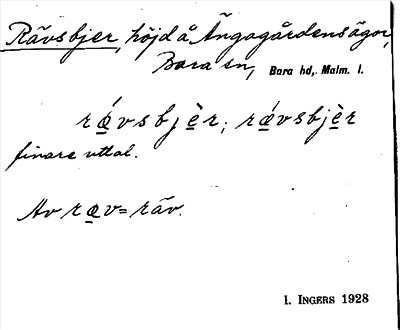 Rävsbjer, höjd å Ängagårdens ägor,
Bara sn, Bara hd, Malm. l.
rǿvsbjèr; rǽvsbjèr
finare uttal.
Av rœv = räv.
I. INGERS 1928